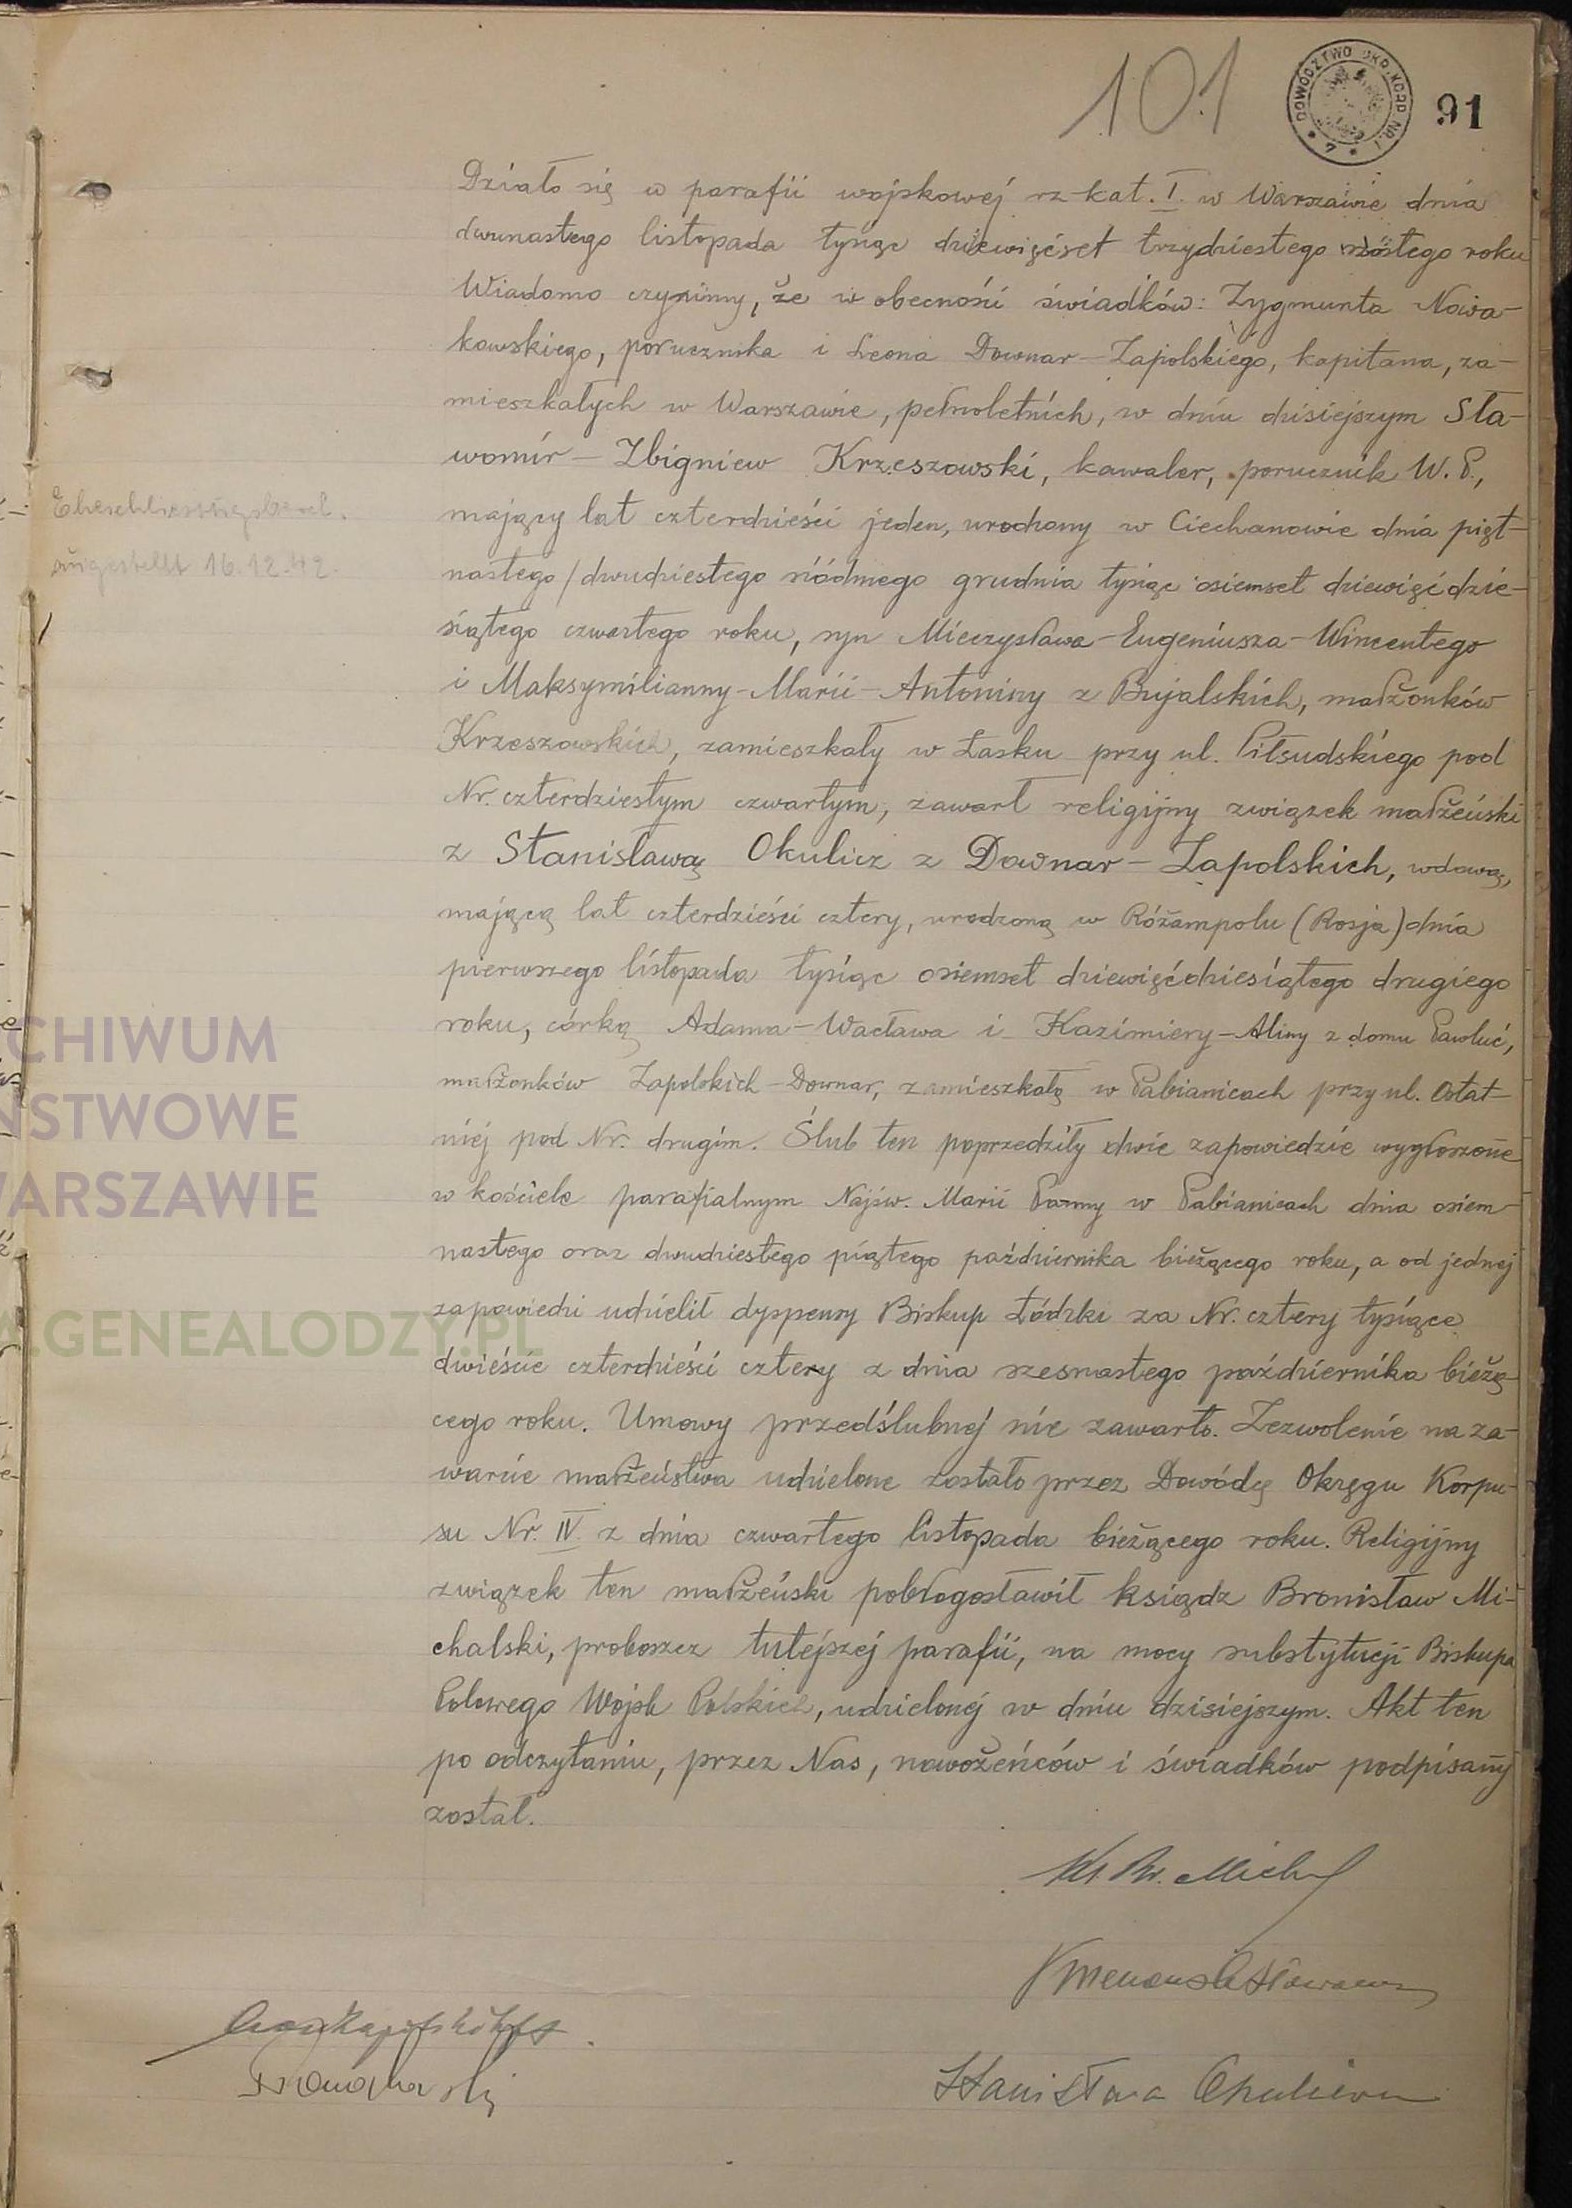 101
DOWÓDZTWO OKR. KORP. NR. I
91
Działo się w parafii wojskowej rz-kat. I. w Warszawie dnia
dwunastego listopada tysiąc dziewięćset trzydziestego szóstego roku
Wiadomo czynimy, że w obecności świadków: Zygmunta Nowa-
kowskiego, porucznika i Leona Downar-Zapolskiego, kapitana, za-
mieszkałych w Warszawie, pełnoletnich, w dniu dzisiejszym Sła-
womir-Zbigniew Krzeszowski, kawaler, porucznik W.P.,
mający lat czterdzieści jeden, urodzony w Ciechanowie dnia pięt-
nastego/dwudziestego siódmego grudnia tysiąc osiemset dziewięćdzie-
siątego czwartego roku, syn Mieczysława-Eugeniusza-Wincentego
i Maksymilianny-Marii-Antoniny z Bujalskich, małżonków
Krzeszowskich, zamieszkały w Łasku przy ul. Piłsudskiego pod
Nr. czterdziestym czwartym, zawarł religijny związek małżeński
z Stanisławą Okulicz z Downar-Zapolskich, wdową,
mającą lat czterdzieści cztery, urodzoną w Różampolu (Rosja) dnia
pierwszego listopada tysiąc osiemset dziewięćdziesiątego drugiego
roku, córką Adama-Wacława i Kazimiery-Aliny z domu Pawluć,
małżonków Zapolskich-Downar, zamieszkałą w Pabianicach przy ul. Ostat-
niej pod Nr. drugim. Ślub ten poprzedziły dwie zapowiedzie wygłoszone
w kościele parafialnym Najśw. Marii Panny w Pabianicach dnia osiem-
nastego oraz dwudziestego piątego października bieżącego roku, a od jednej
zapowiedzi udzielił dyspensy Biskup Łódzki za Nr. cztery tysiące
dwieście czterdzieści cztery z dnia szesnastego października bieżą-
cego roku. Umowy przedślubnej nie zawarto. Zezwolenie na za-
warcie małżeństwa udzielone zostało przez Dowódcę Okręgu Korpu-
su Nr. IV. z dnia czwartego listopada bieżącego roku. Religijny
związek ten małżeński pobłogosławił ksiądz Bronisław Mi-
chalski, proboszcz tutejszej parafii, na mocy substytucji Biskupa
Polowego Wojsk Polskich, udzielonej w dniu dzisiejszym. Akt ten
po odczytaniu, przez Nas, nowożeńców i świadków podpisany
został.
ausgestellt 16.12.42.
ARCHIWUM
PAŃSTWOWE
WARSZAWIE
GENEALODZY.PL
Stanisława Okulicz